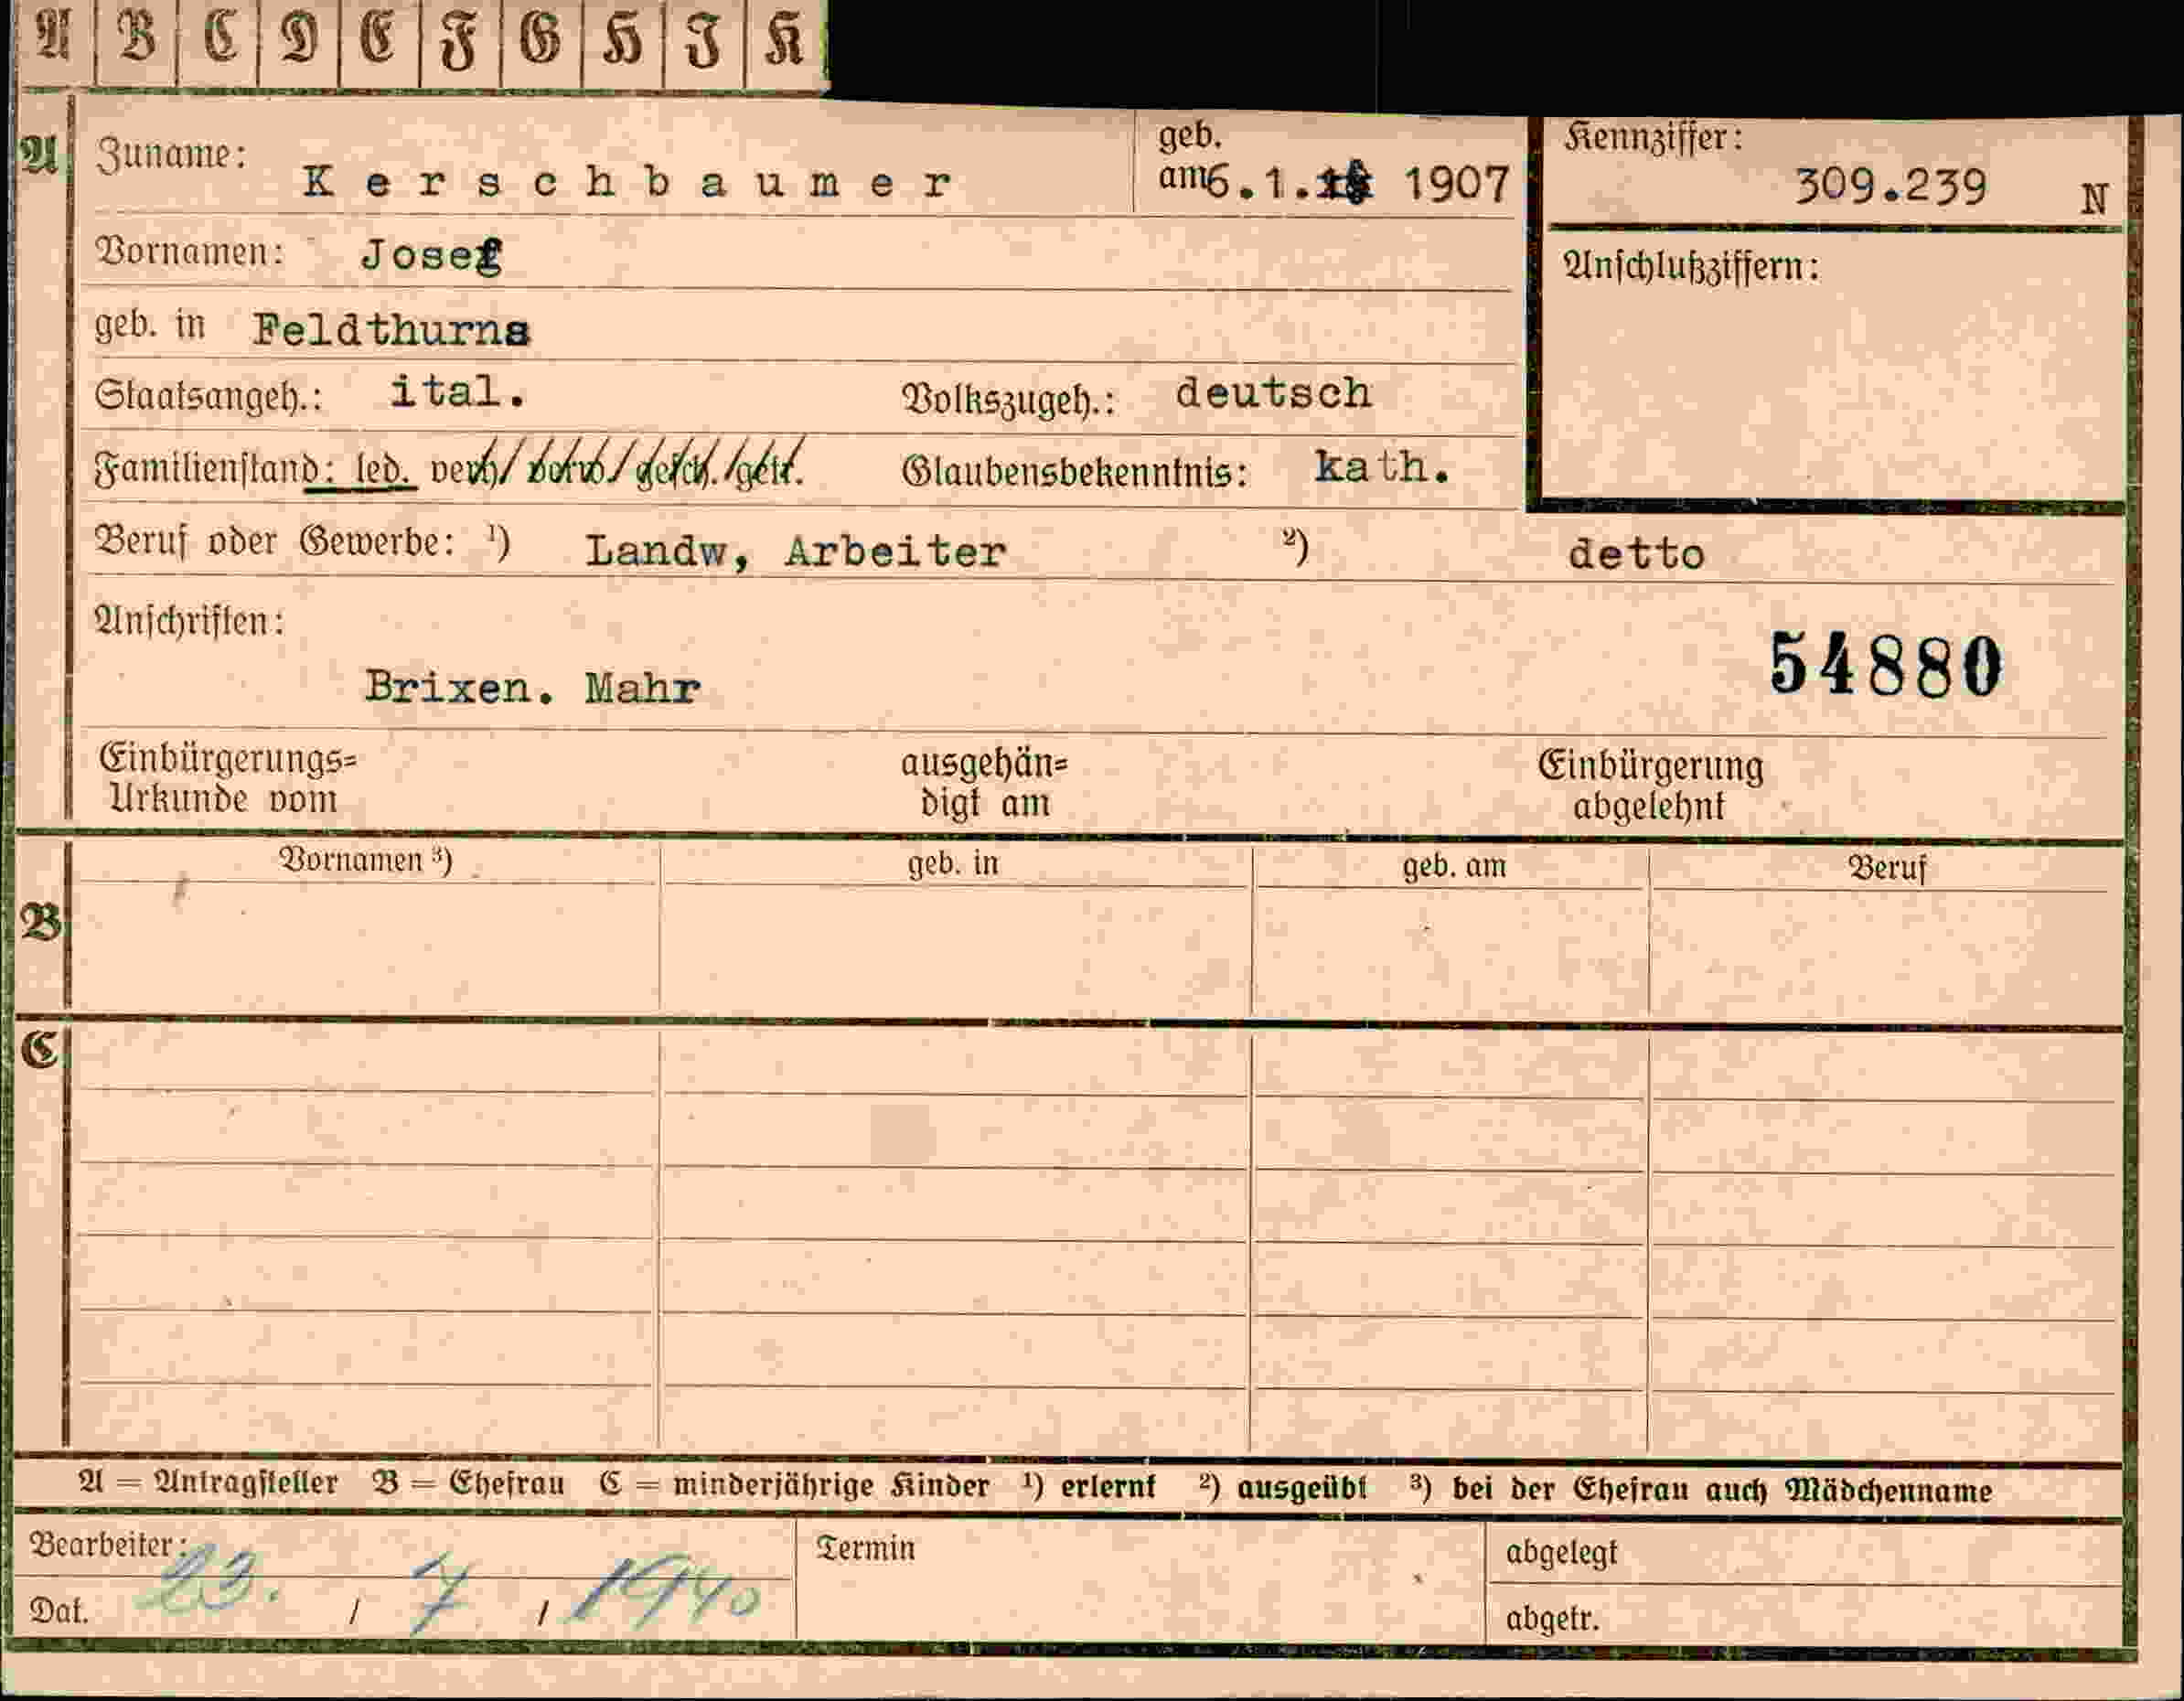 A B C D E F G H I K
A Zuname: Kerschbaumer geb. am 6.1. 1907 Kennziffer: 309.239 N
Vornamen: Josef Anschlußziffern:
geb. in Feldthurns
Staatsangeh.: ital. Volkszugeh.: deutsch
Familienstand: led. verh/ verw/ gesch./getr. Glaubensbekenntnis: kath.
Beruf oder Gewerbe: ¹) Landw, Arbeiter ²) detto
Anschriften:
54880
Brixen. Mahr
Einbürgerungs= ausgehän= Einbürgerung
Urkunde vom digt am abgelehnt
Vornamen ³) geb. in geb. am Beruf
B
C
A = Antragsteller B = Ehefrau C = minderjährige Kinder ¹) erlernt ²) ausgeübt ³) bei der Ehefrau auch Mädchenname
Bearbeiter: Termin abgelegt
Dat. 23. / 7 / 1940 abgetr.